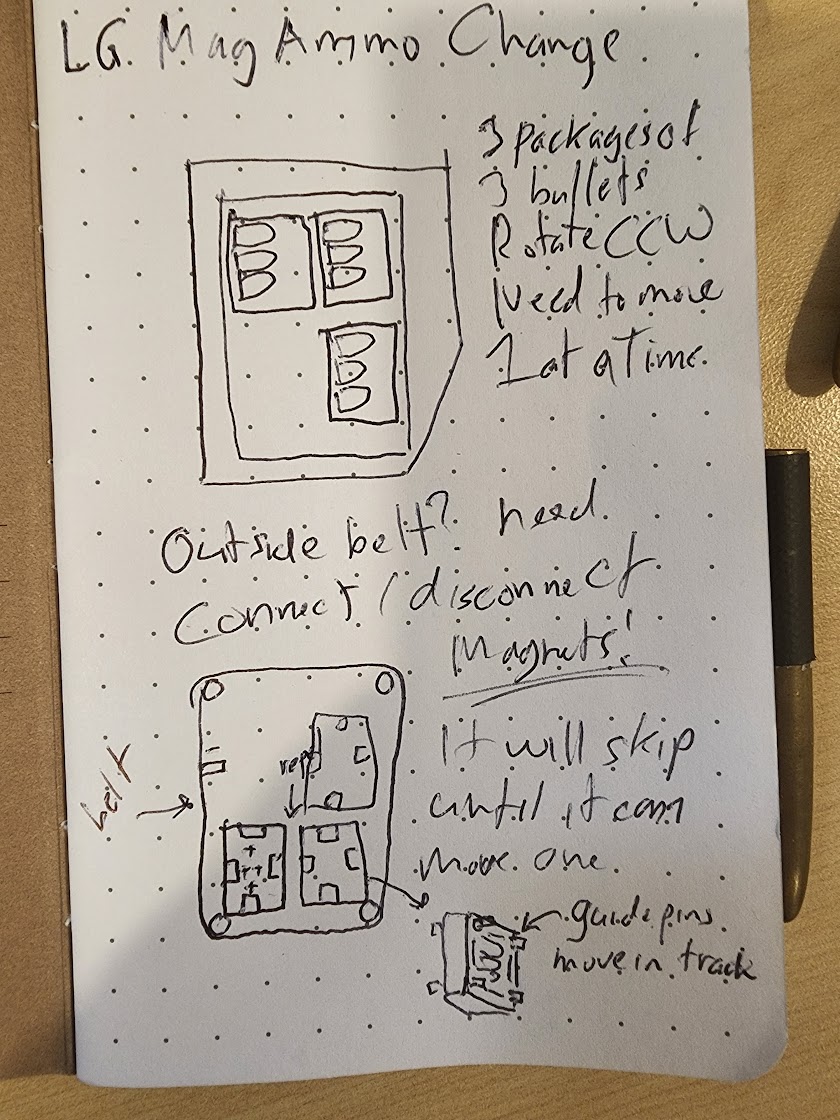 LG Mag Ammo Change
3 packages of
3 bullets
Rotate CCW
Need to move
1 at a Time.
Outside belt? need
Connect / disconnect
Magnets!
It will skip
until it can
move one.
belt
guide pins
move in track